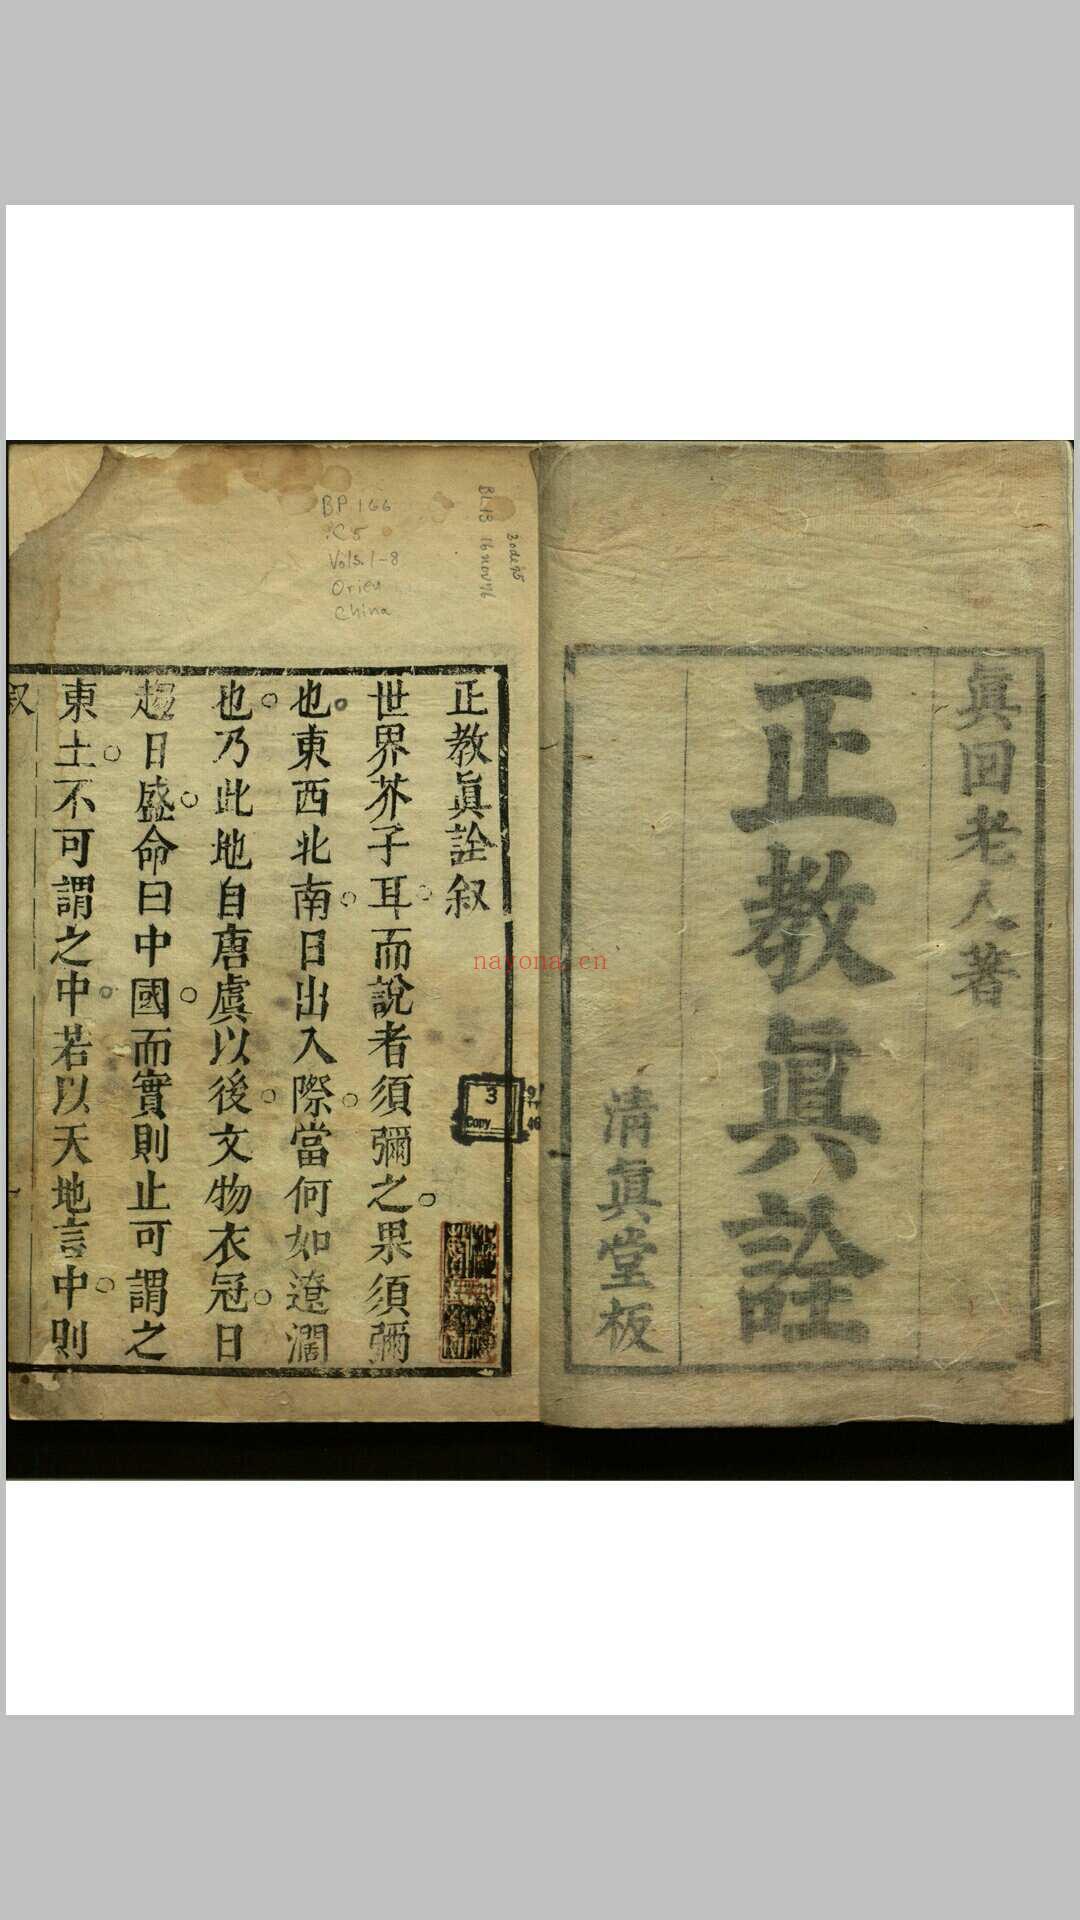 眞回老人著
正教眞詮
清眞堂板
BP 166
.C5
Vols.1-8
Orien
China
BL 13 16 nov 76
正教眞詮叙
世界芥子耳而說者須彌之果須彌
也東西北南日出入際當何如遼濶
也乃此地自唐虞以後文物衣冠日
趨日盛命曰中國而實則止可謂之
東土不可謂之中若以天地言中則
叙
一
3
Copy
nayona.cn